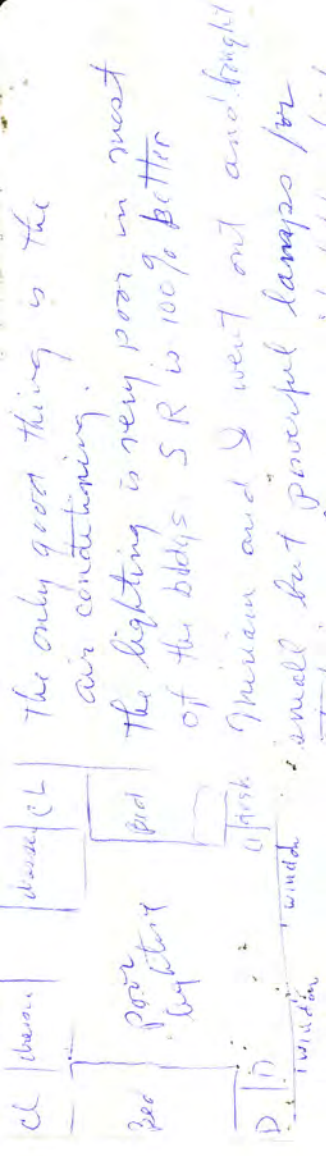 The only good thing is the
air conditioning.
The lighting is very poor in most
of the bldgs. SR is 100% better
Miriam and I went out and bought
small but powerful lamps for
CL
dresser
dresser
CL
Bed
Poor
lighting
Bed
D
D
desk
window
window